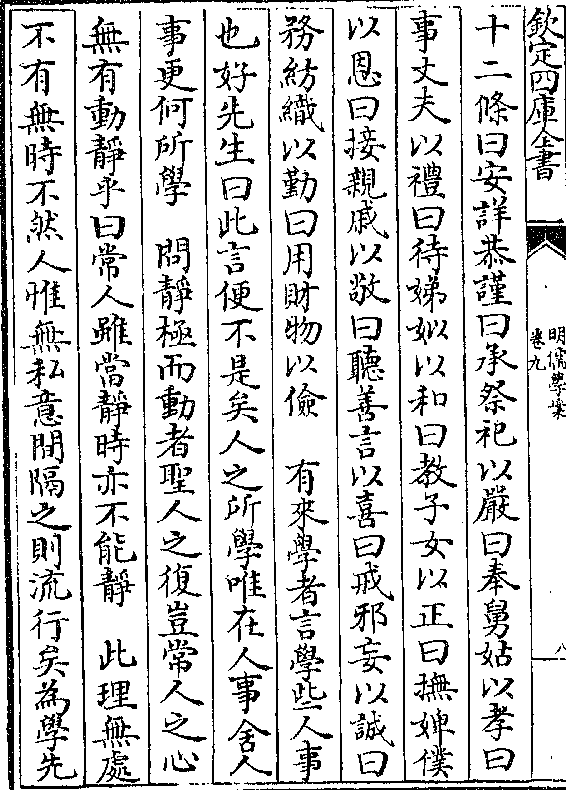 欽定四庫全書
明儒學案
卷九
八
十二條曰安詳恭謹曰承祭祀以嚴曰奉舅姑以孝曰
事丈夫以禮曰待娣姒以和曰教子女以正曰撫婢僕
以恩曰接親戚以敬曰聽善言以喜曰戒邪妄以誠曰
務紡織以勤曰用財物以儉　有來學者言學些人事
也好先生曰此言便不是矣人之所學唯在人事舍人
事更何所學　問靜極而動者聖人之復豈常人之心
無有動靜乎曰常人雖當靜時亦不能靜　此理無處
不有無時不然人惟無私意間隔之則流行矣為學先